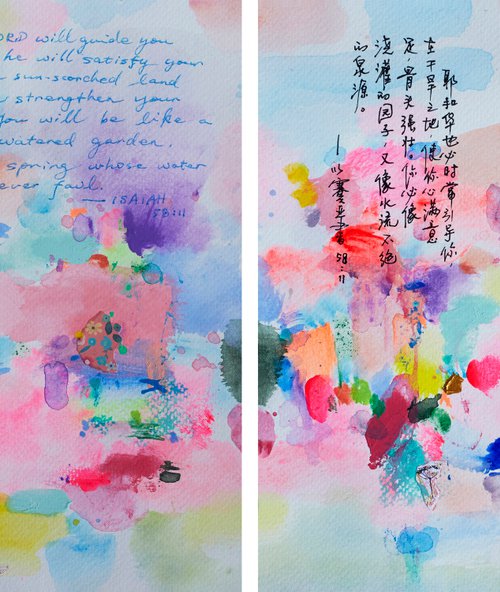 ORD will guide you
he will satisfy your
sun-scorched land
strengthen your
you will be like a
watered garden,
spring whose water
ever fail.
— ISAIAH
58:11
耶和华也必时常引导你,
在干旱之地,使你心满意
足,骨头强壮。你必像
浇灌的园子,又像水流不绝
的泉源。
— 以賽亚書 58:11